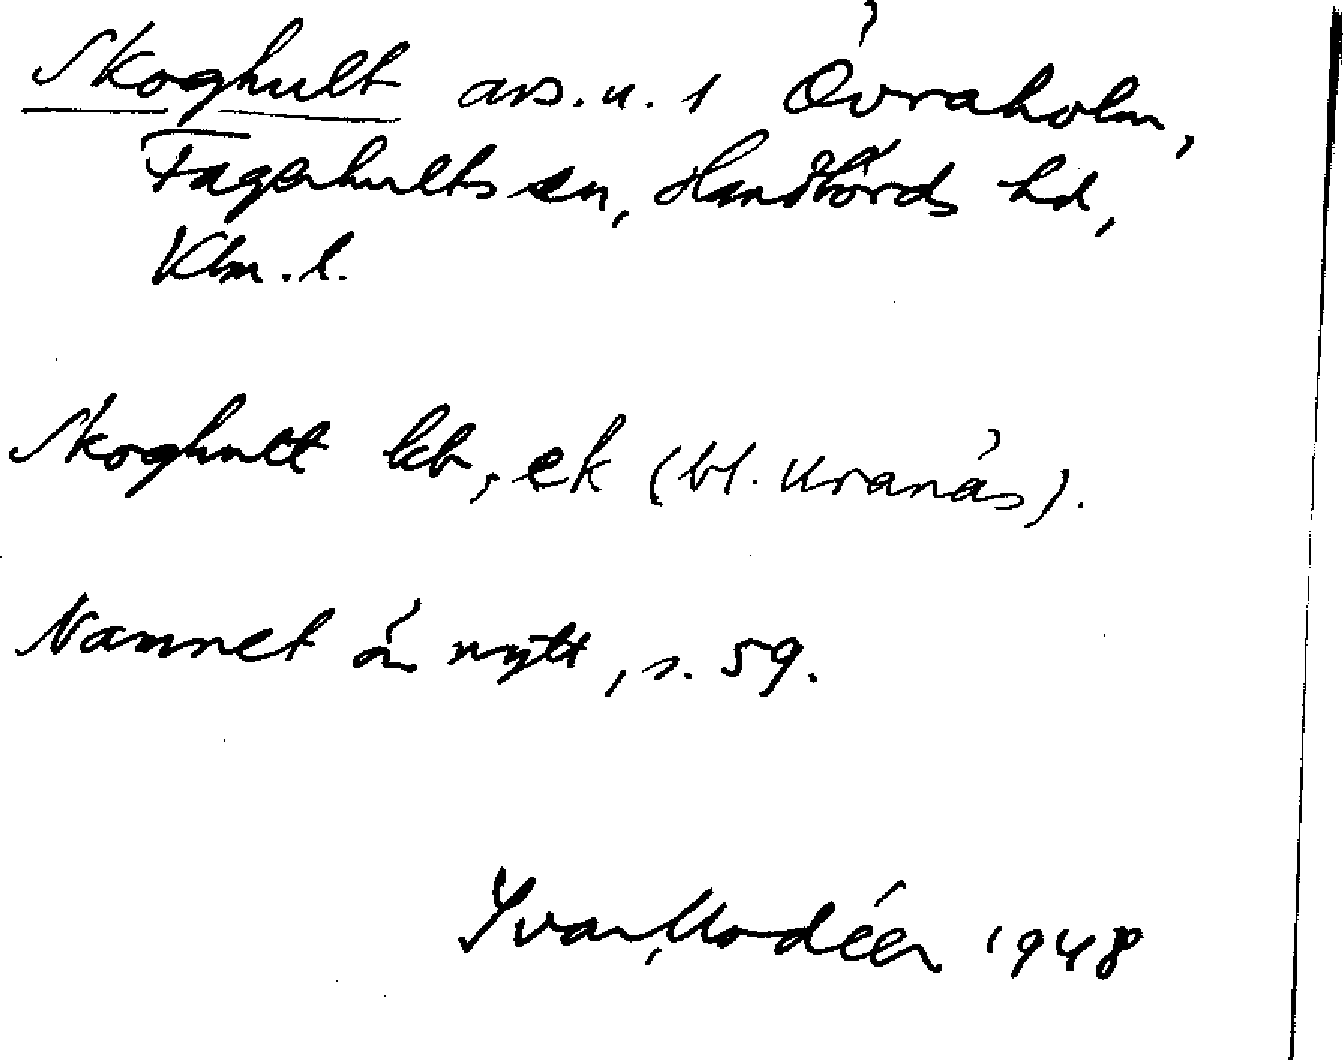 Skoghult avs. u. 1 Övraholm,
Fagerhults sn, Handbörds hd,
Klm. l.
Skoghult kb, ek (bl. Uranäs).
Namnet är nytt, s. 59.
Ivar Modéer 1948